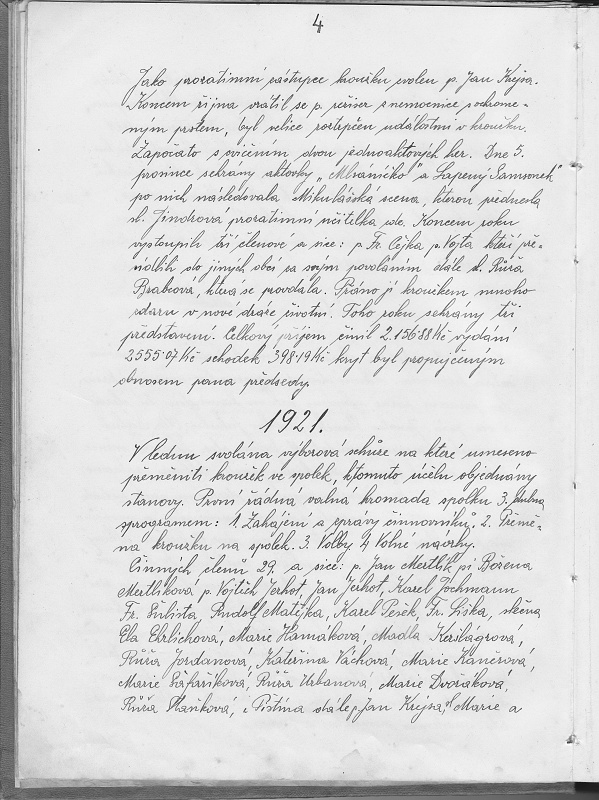 4
Jako prozatimní zástupce kroužku zvolen p. Jan Krejsa.
Koncem října vrátil se p. režiser z nemocnice s ochrome-
ným prstem, byl velice roztrpčen událostmi v kroužku.
Započato s cvičením dvou jednoaktových her. Dne 5.
prosince sehrány aktovky „Mlsaníčko" a Lapený Samsonek"
po nich následovala Mikulášská scena, kterou přednesla
sl. Jindrova prozatimní učitelka zde. Koncem roku
vystoupili tři členove a sice: p. Fr. Cejka p. Vojta kteří pře-
sídlili do jiných obcí za svým povoláním dále sl. Růža
Brabcová, která se provdala. Přáno jí kroužkem mnoho
zdaru v nové dráze životní. Toho roku sehrány tři
představení. Celkový příjem činil 2.156·88 Kč vydání
2555·07 Kč schodek 398·19 Kč kryt byl propujčeným
obnosem pana předsedy.
1921.
V lednu svolána výborová schůze na které usneseno
přeměniti kroužek ve spolek, k tomuto účelu objednány
stanovy. První řádná valná hromada spolku 3. dubna
s programem: 1. Zahájení a zprávy činnovníků. 2. Přemě-
na kroužku na spolek. 3. Volby 4 Volné návrhy.
Činných členů 29. a sice: p. Jan Mertlík pí Božena
Mertlíková p. Vojtěch Jerhot, Jan Jerhot, Karel Jochmann
Fr. Šulista, Rudolf Matějka, Karel Pešek, Fr. Šiška, slečna
Ela Ehrlichova, Marie Hamáková, Madla Kerslágrova,
Růža Jordanová, Kateřina Váchová, Marie Kančrová,
Marie Šafaříková, Růža Urbanova, Marie Dvořáková,
Růža Haňkova, z Pištína dále p. Jan Krejsa, sl. Marie a